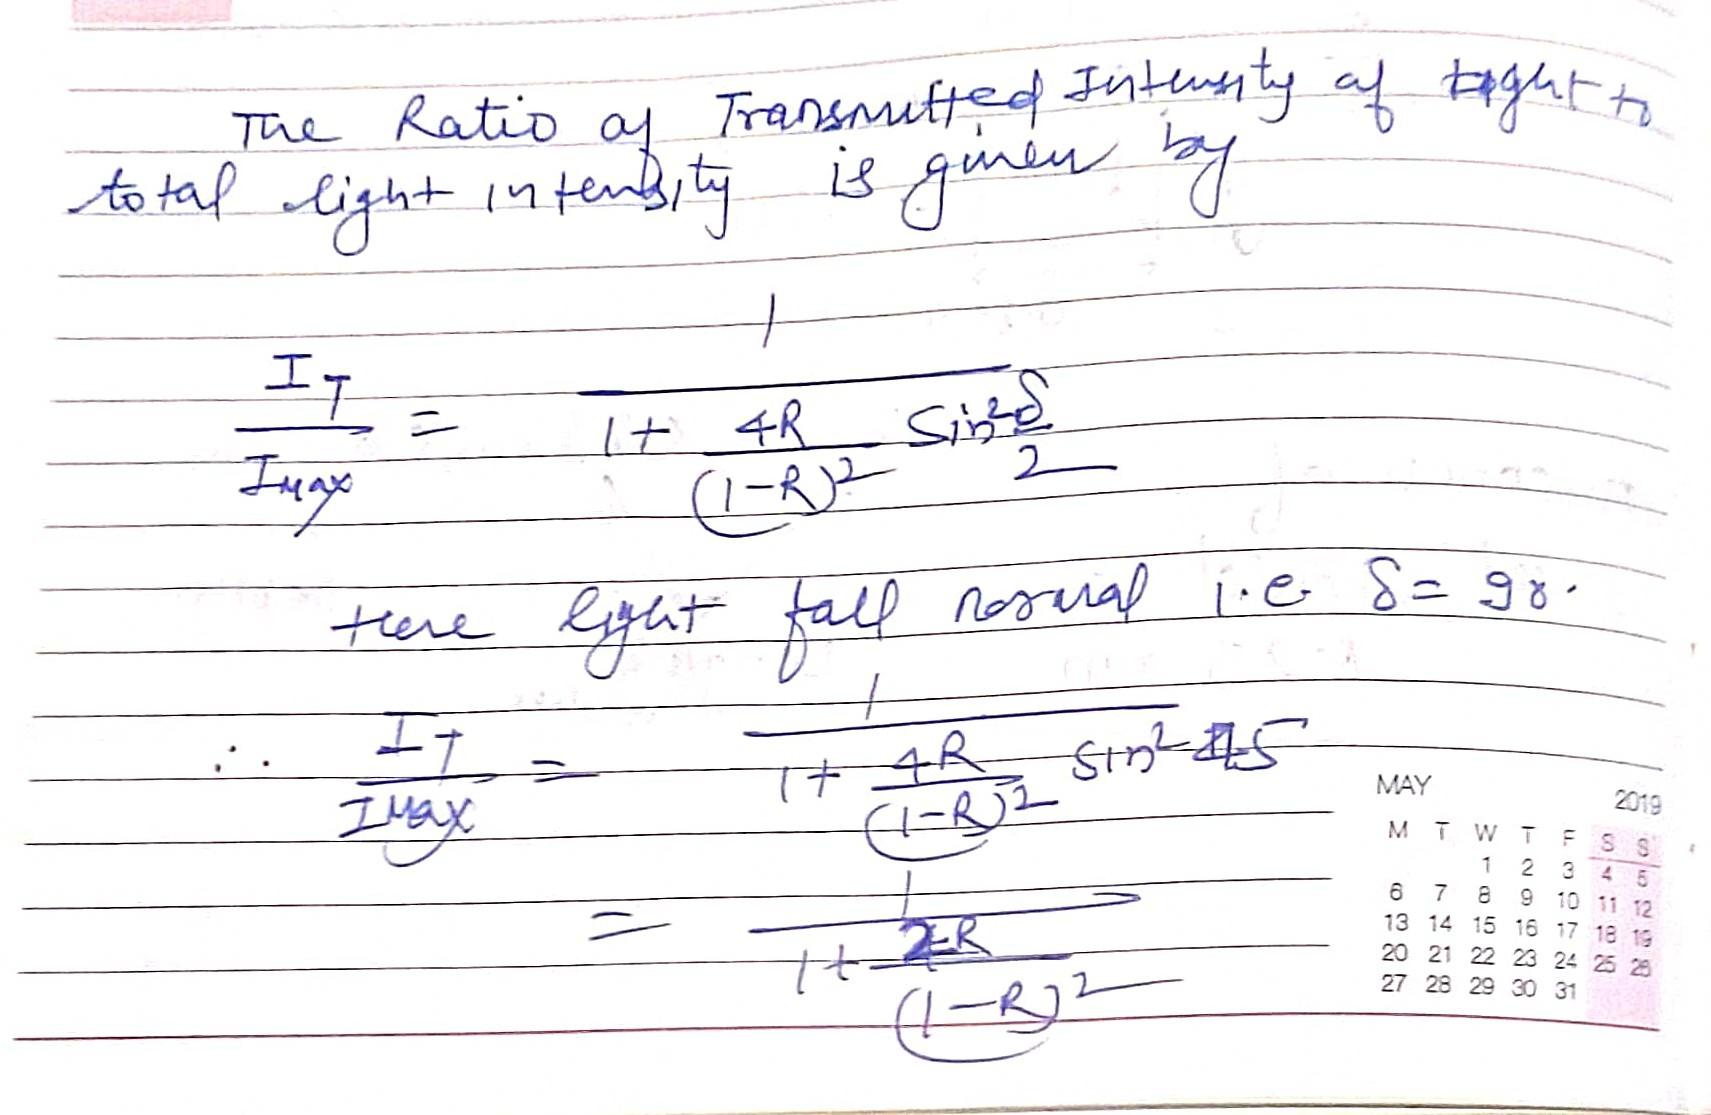 The Ratio of Transmitted Intensity of light to
total light intensity is given by
I_T / I_Max = 1 / (1 + 4R/(1-R)² Sin² δ/2)
Here light fall normal i.e. δ = 90.
∴ I_T / I_Max = 1 / (1 + 4R/(1-R)² Sin² 45)
= 1 / (1 + 2R/(1-R)²)
MAY 2019
M T W T F S S
1 2 3 4 5
6 7 8 9 10 11 12
13 14 15 16 17 18 19
20 21 22 23 24 25 26
27 28 29 30 31